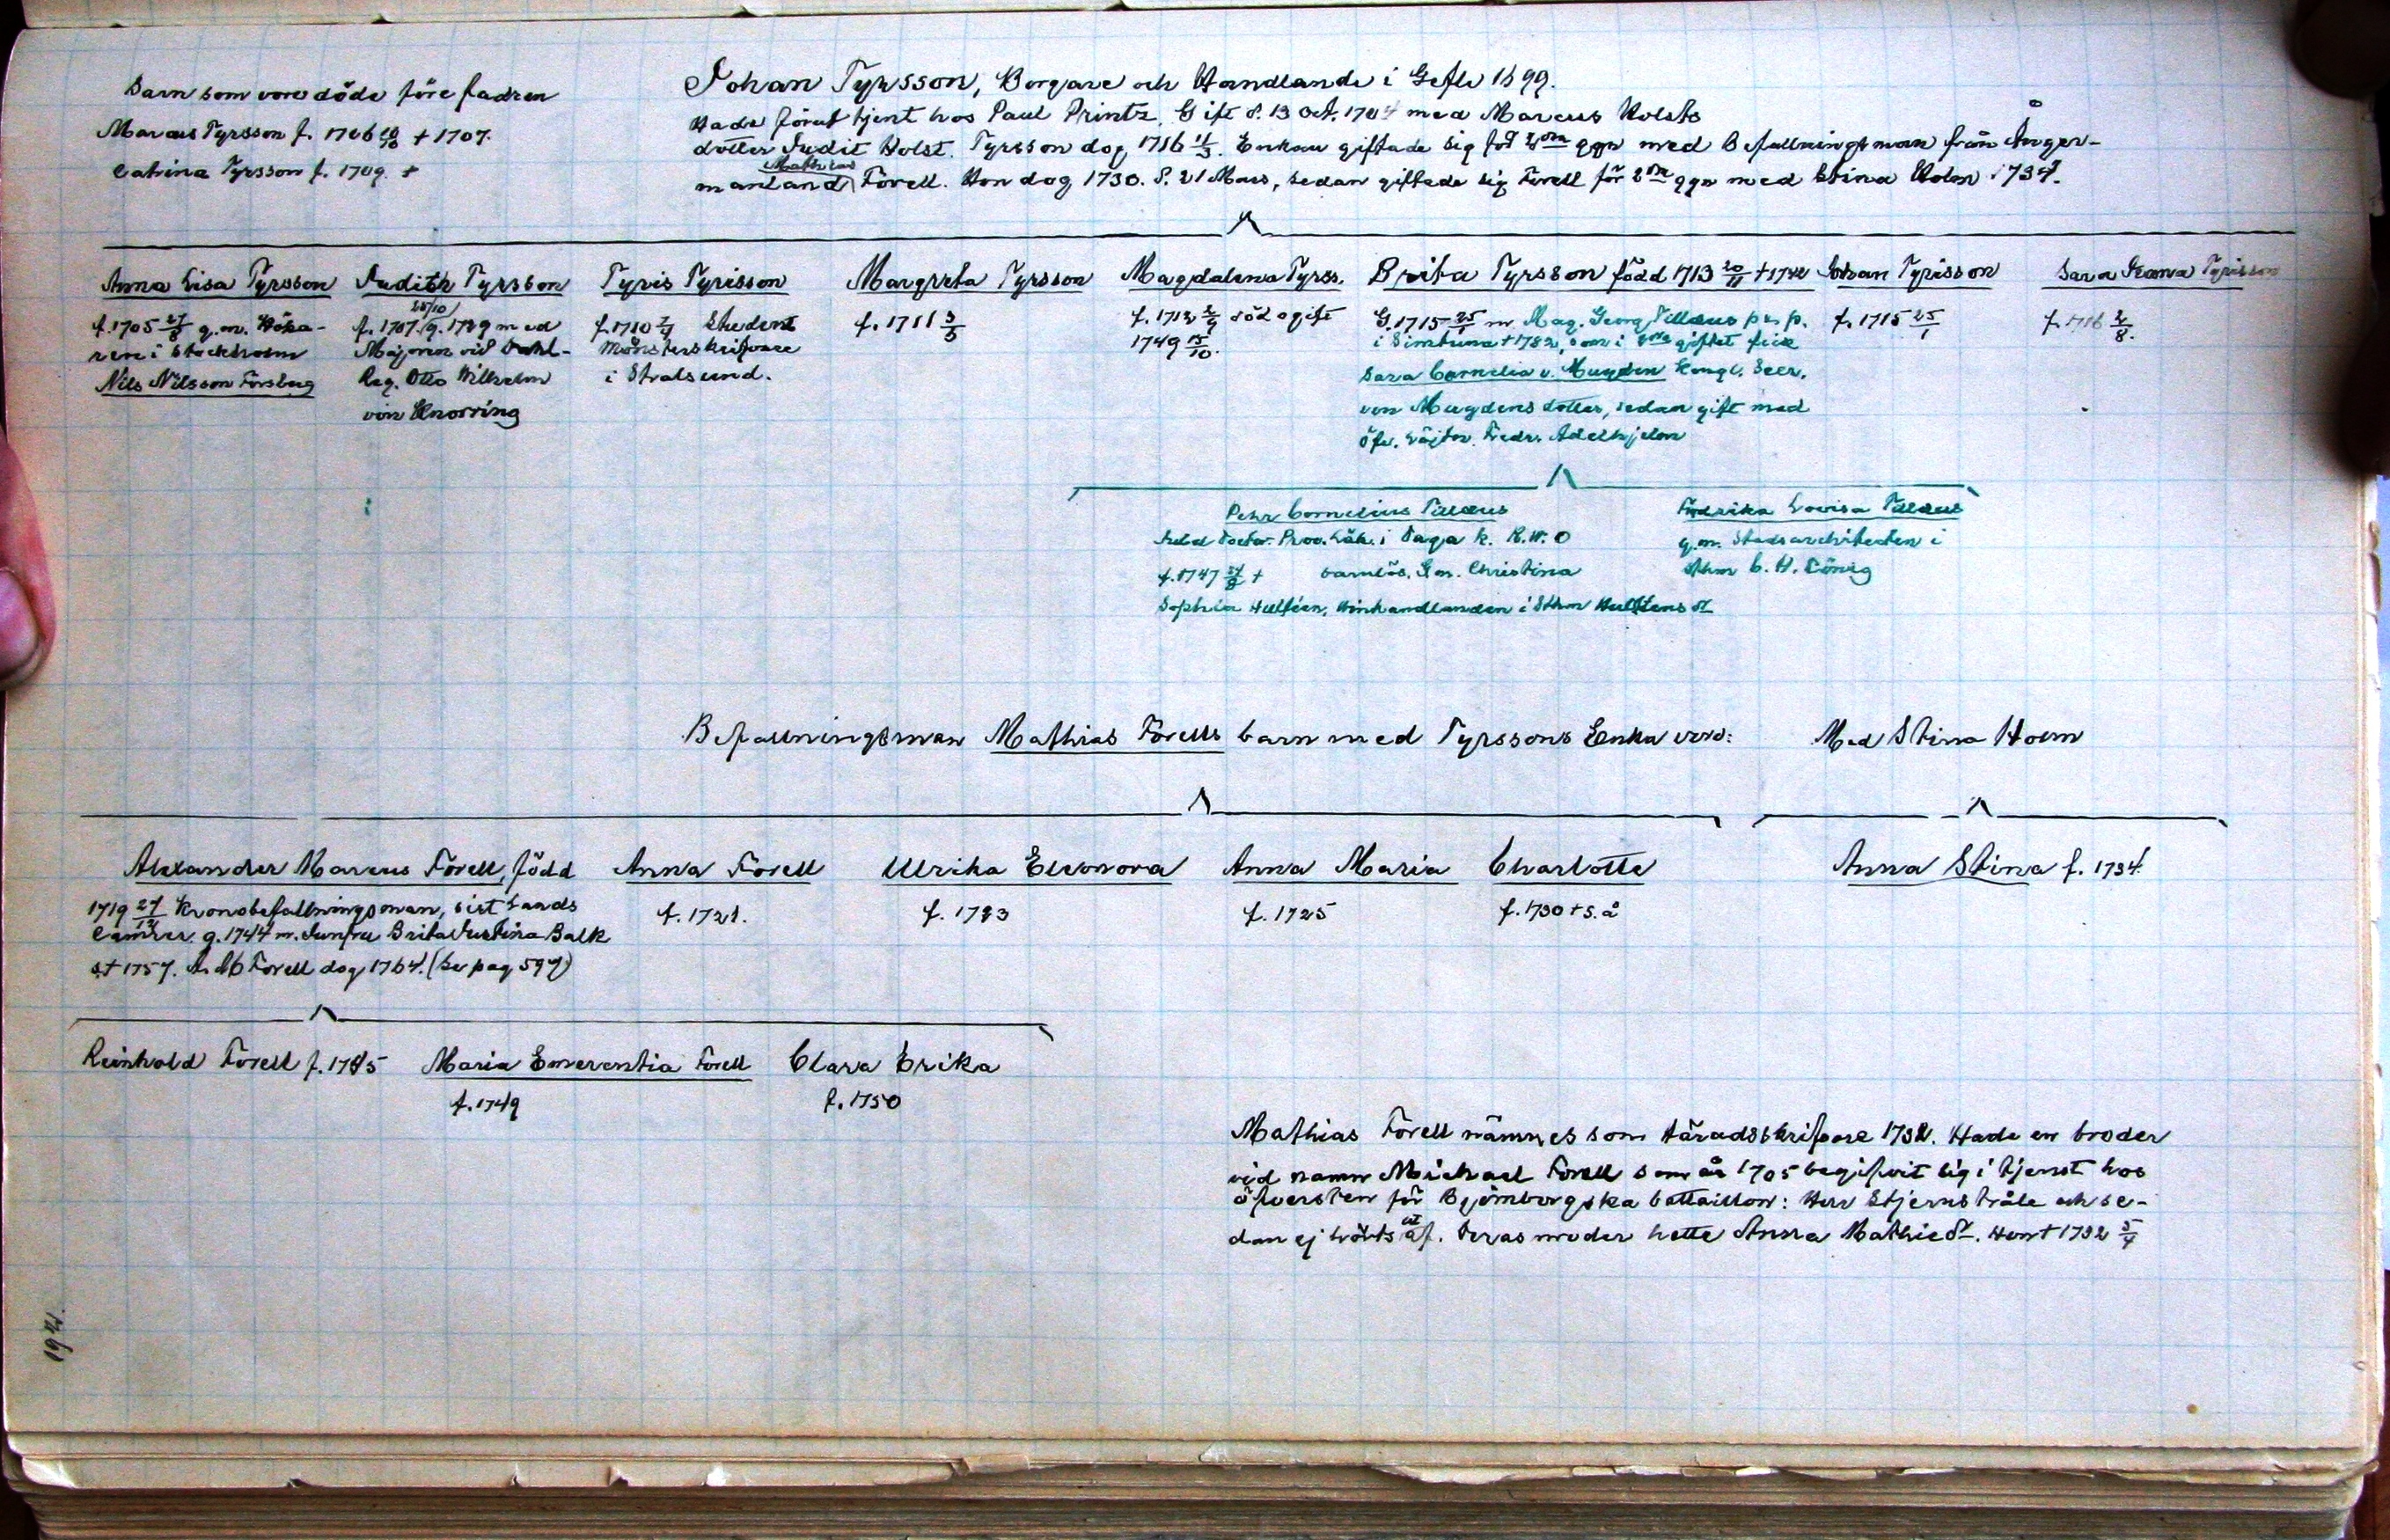 Barn som voro döde före fadren
Marcus Tyrsson f. 1706 + 1707.
Catrina Tyrsson f. 1709. +
Johan Tyrsson, Borgare och Handlande i Gefle 1699.
Hade förut tjent hos Paul Printz. Gift d. 13 Oct. 1704 med Marcus Holsts
dotter Judit Holst. Tyrsson dog 1716 11/3. Enkan giftade sig för 2dra ggn med Befallningsman från Ånger-
manland Mathias Forell. Hon dog 1730. d. 21 Mars, sedan giftade sig Forell för 2dra ggn med Stina Holm 1734.
Anna Lisa Tyrsson
f. 1705 27/8 g.m. Höka-
ren i Stockholm
Nils Nilsson Forsberg
Judith Tyrsson
25/10
f. 1707. g. 1729 med
Majoren vid Dahl-
Reg. Otto Wilhelm
von Knorring
Tyris Tyrisson
f. 1710 Student
Mönsterskrifvare
i Stralsund.
Margreta Tyrsson
f. 1711 3/5
Magdalena Tyrss.
f. 1712 2/9 död ogift
1749 15/10.
Brita Tyrsson född 1713 20/11 + 1742
G. 1715 25/1 m. Mag. Georg Tillæus p. s. p.
i Simtuna + 1782, som i 2dra giftet fick
Sara Cornelia v. Muyden Kongl. Secr.
von Muydens dotter, sedan gift med
Öfv. Löjtn. Fredr. Adelhjelm
Johan Tyrisson
f. 1715 25/1
Sara Joana Tyrisson
f. 1716 2/8.
Pehr Cornelius Tillæus
Med Doctor. Prov. Läk. i Daga h. R.W.O
f. 1747 24/8 + barnlös. G.m. Christina
Sophia Hultéen, Vinhandlanden i Sthm Hulténs dr
Fredrika Lovisa Tillæus
g.m. Stadsarchitecten i
Sthm C. H. König
Befallningsman Mathias Forells barn med Tyrssons Enka voro:
Med Stina Holm
Alexander Marcus Forell, född
1719 27/12 Kronobefallningsman, sist Lands
Camrer. g. 1744 m. Jungfru Brita Justina Balk
+ 1757. A. M Forell dog 1764. (Se pag 597)
Anna Forell
f. 1721.
Ulrika Eleonora
f. 1723
Anna Maria
f. 1725
Charlotte
f. 1730 + s. å
Anna Stina f. 1734.
Reinhold Forell f. 1745
Maria Emerentia Forell
f. 1749
Clara Erika
f. 1750
Mathias Forell nämnes som Häradskrifvare 1732. Hade en broder
vid namn Michael Forell som år 1705 begifvit sig i tjenst hos
öfversten för Björneborgska bataillon: Herr Stjernstråle och se-
dan ej hörts af. Deras moder hette Anna Mathiedr. Hon + 1732 5/4
192.